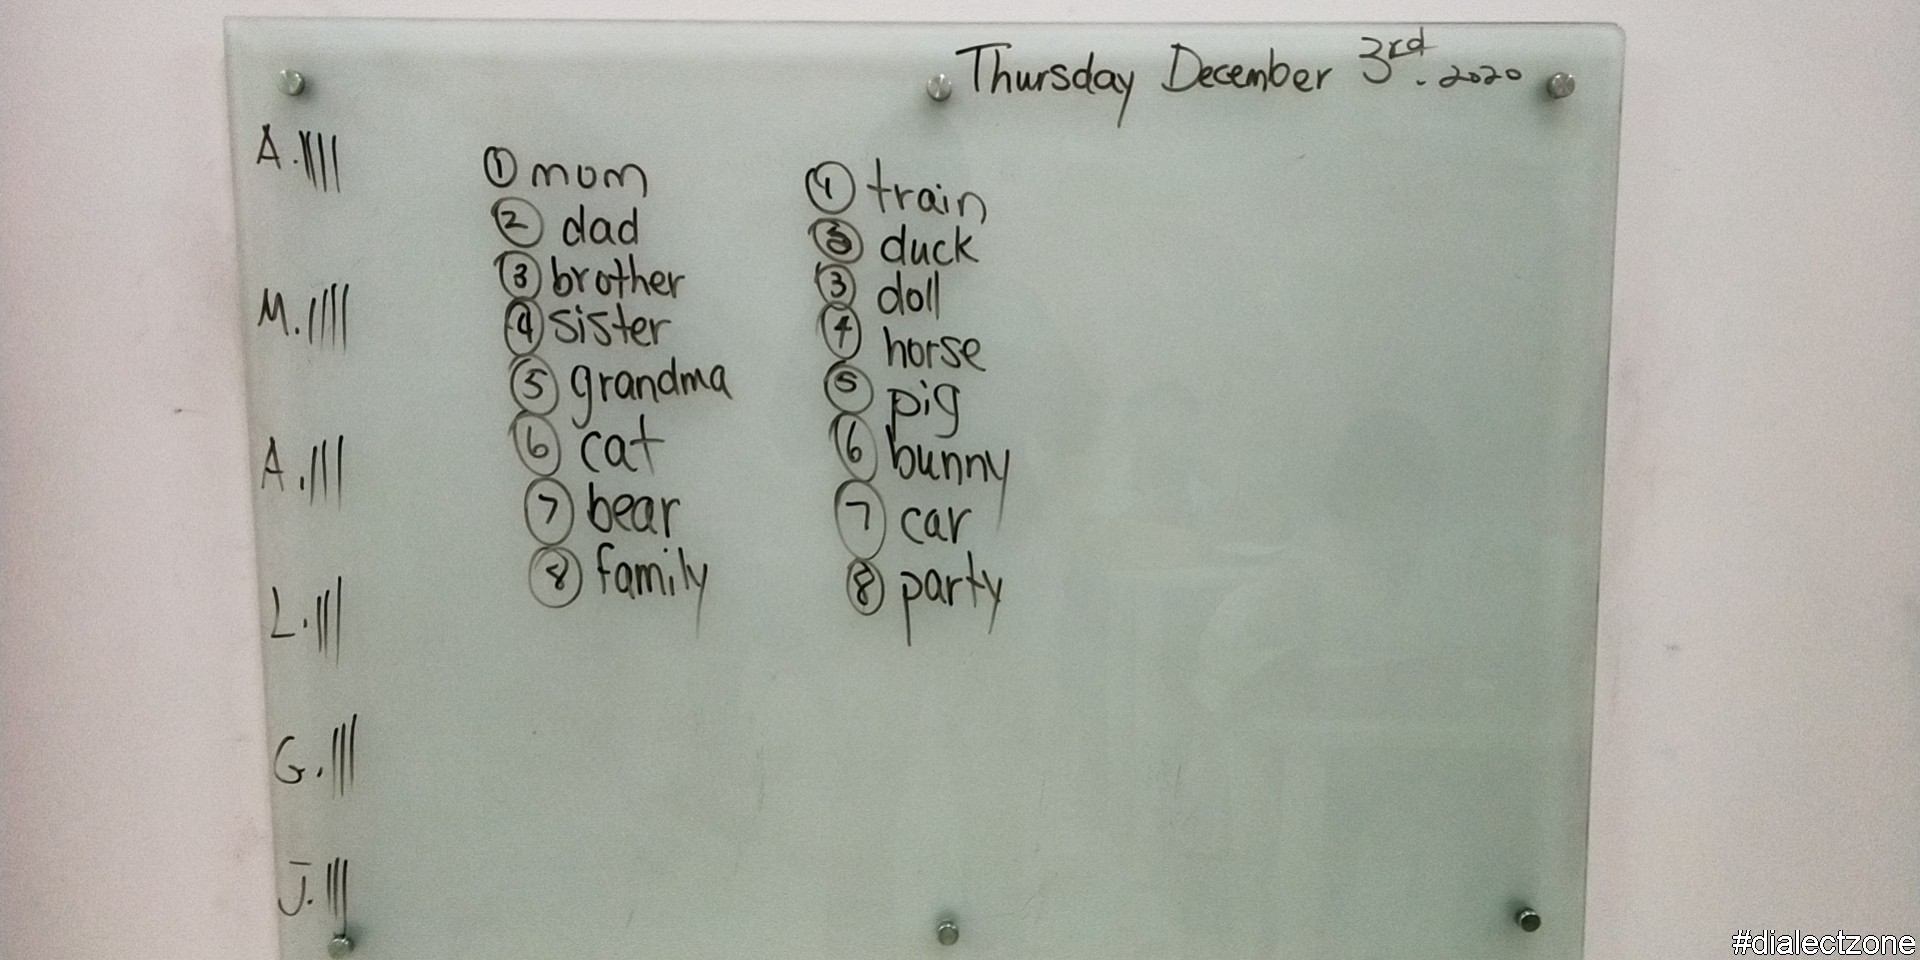 Thursday December 3rd. 2020
A. ||||
M. ||||
A. |||
L. |||
G. |||
J. |||
① mom
② dad
③ brother
④ sister
⑤ grandma
⑥ cat
⑦ bear
⑧ family
① train
② duck
③ doll
④ horse
⑤ pig
⑥ bunny
⑦ car
⑧ party
#dialectzone